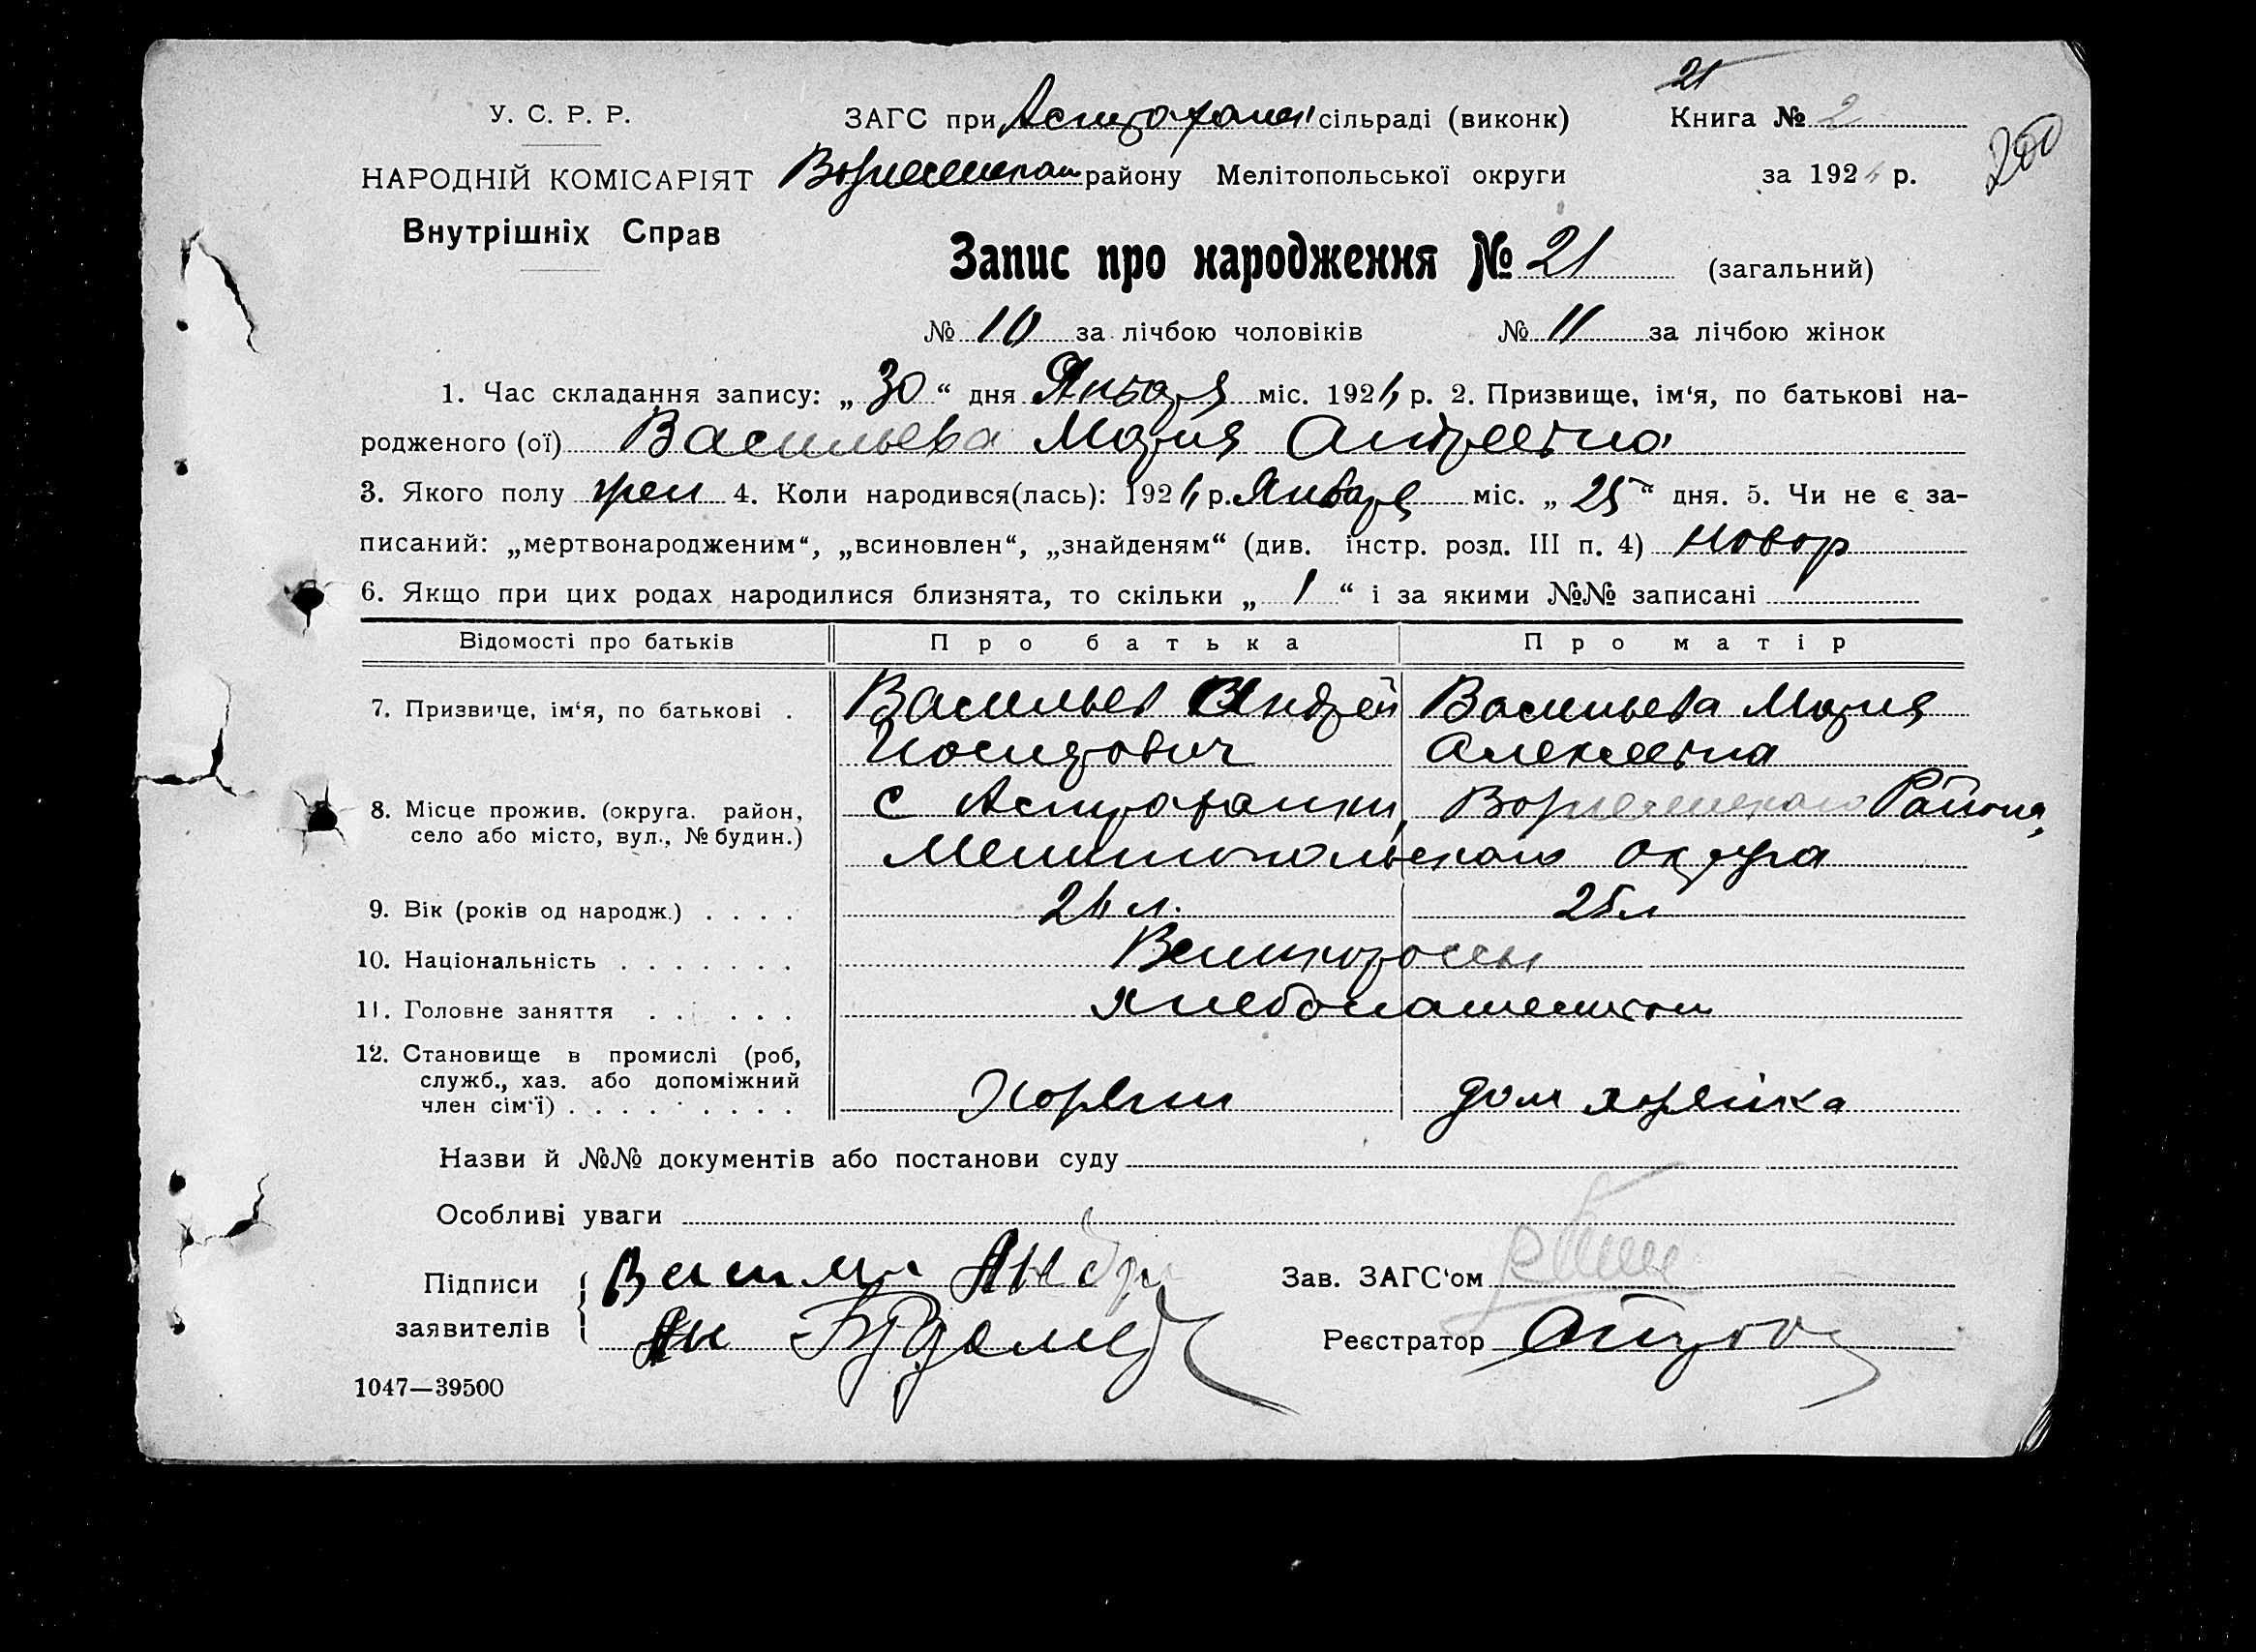 21
У. С. Р. Р. ЗАГС при Астраханск сільраді (виконк) Книга № 2
200
НАРОДНІЙ КОМІСАРІЯТ Вознесенском району Мелітопольської округи за 1924 р.
Внутрішніх Справ
Запис про народження № 21 (загальний)
№ 10 за лічбою чоловіків № 11 за лічбою жінок
1. Час складання запису: „ 30 “ дня Января міс. 1924 р. 2. Призвище, ім‘я, по батькові на-
родженого (ої) Васильева Мария Андреевна
3. Якого полу жен 4. Коли народився(лась): 1924 р. Января міс. „ 25 “ дня. 5. Чи не є за-
писаний: „мертвонародженим“, „всиновлен“, „знайденям“ (див. інстр. розд. III п. 4) Новор
6. Якщо при цих родах народилися близнята, то скільки „ 1 “ і за якими №№ записані
Відомості про батьків Про батька Про матір
7. Призвище, ім‘я, по батькові . Васильев Андрей Васильева Мария
Иосифович Алексеевна
8. Місце прожив. (округа. район, с Астраханки, Вознесенского Района,
село або місто, вул., № будин.)
Мелитопольского округа
9. Вік (років од народж.) . . . . 24 л. 25 л
10. Національність . . . . . . . Великороссы
11. Головне заняття . . . . . . хлебопашеством
12. Становище в промислі (роб,
служб., хаз. або допоміжний
член сім‘ї) . . . . . . . . . Хозяин дом хозяйка
Назви й №№ документів або постанови суду
Особливі уваги
Підписи Андре Зав. ЗАГС‘ом
заявителів Реєстратор
1047—39500